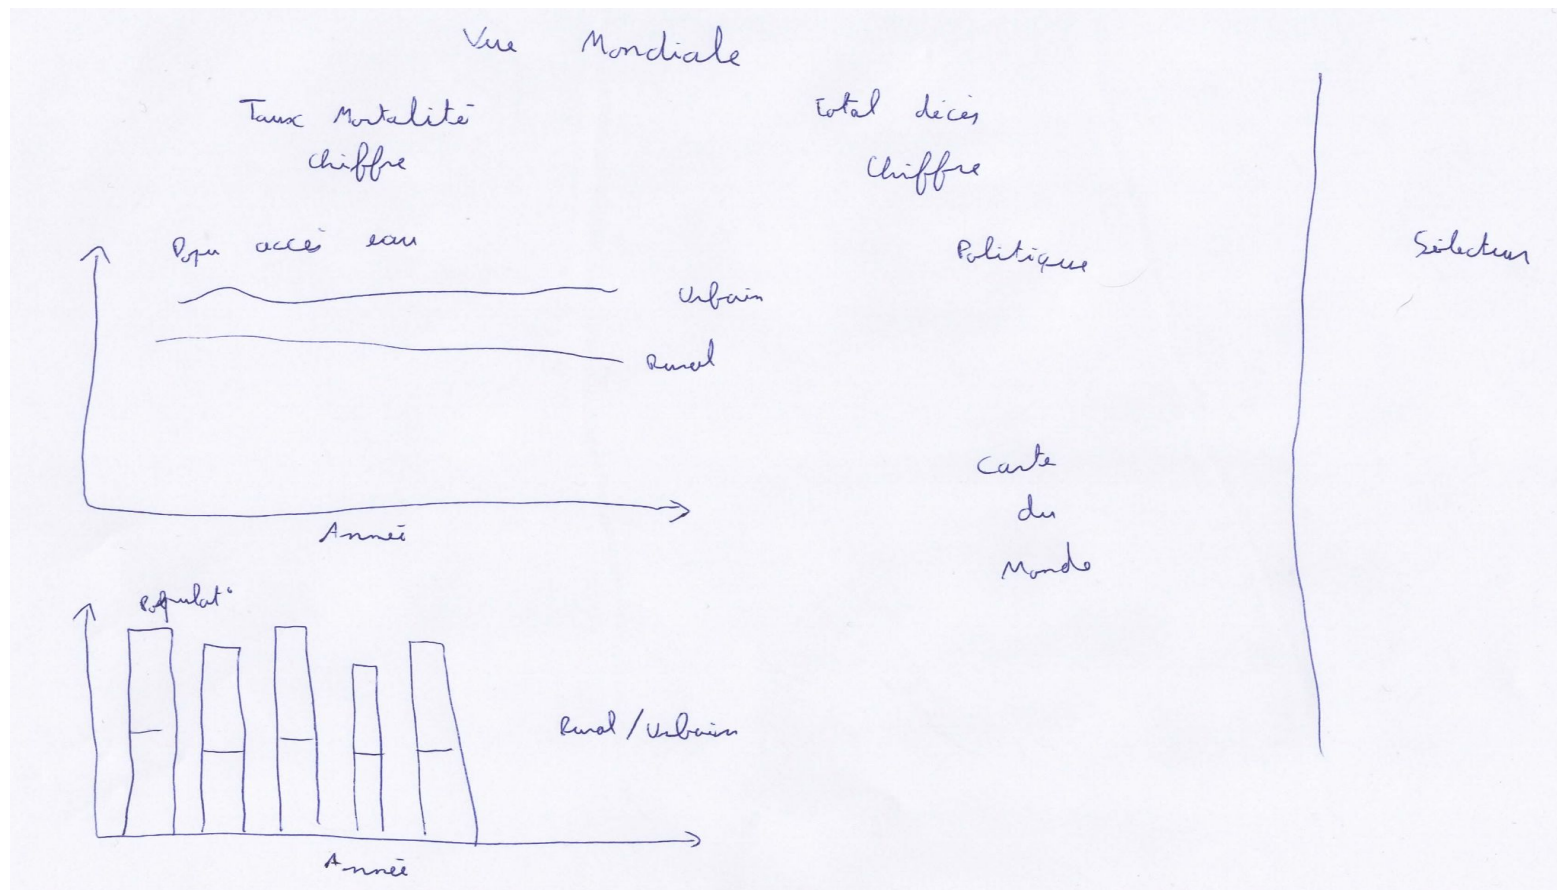 Vue Mondiale
Taux Mortalité
Chiffre
total décès
Chiffre
Popu accès eau
Urbain
Rural
Année
Politique
Sélecteur
Carte
du
Monde
Populat°
Rural / Urbain
Année